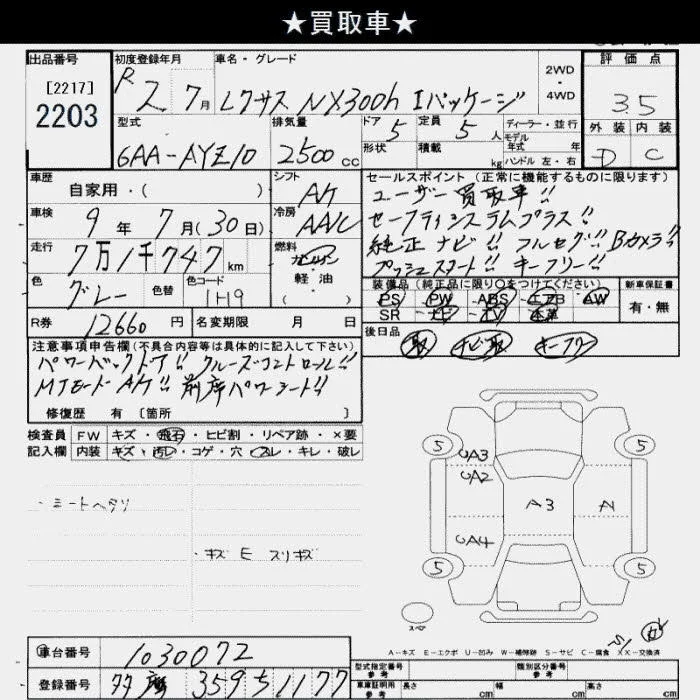 ★買取車★
出品番号
[2217]
2203
初度登録年月
R2 7月
車名・グレード
レクサス NX300h Iパッケージ
2WD
・
4WD
評価点
3.5
外装 内装
D C
型式
6AA-AYZ10
排気量
2500cc
ドア
5
定員
5人
形状
積載
kg
ディーラー・並行
モデル
年式 年
ハンドル 左・右
車歴
自家用・( )
シフト
AT
セールスポイント(正常に機能するものに限ります)
ユーザー買取車!!
セーフティシステムプラス!!
純正ナビ!! フルセグ!! Bカメラ!!
プッシュスタート!! キーフリー!!
車検
9年 7月(30日)
冷房
AAC
走行
7万1千747km
燃料
ガソリン
・
軽油
( )
色
グレー
色替
色コード
1H9
装備品(純正品に限り○をつけてください)
PS PW ABS エアB AW
SR ナビ TV 本革
新車保証書
有・無
R券
12660円
名変期限 月 日
後日品
取 ナビ取 キーフリー
注意事項申告欄(不具合内容等は具体的に記入して下さい)
パワーバックドア!! クルーズコントロール!!
MTモードAT!! 前席パワーシート!!
修復歴 有 [箇所 ]
検査員
記入欄
FW キズ・飛石・ヒビ割・リペア跡・×要
内装 キズ・汚レ・コゲ・穴・スレ・キレ・破レ
・シートヘタリ
・キズ E スリキズ
5 5
A3
A2
A3 A
A4
5 5
スペア
A−キズ E−エクボ U−凹み W−補修跡 S−サビ C−腐食 XX−交換済
車台番号
1030072
登録番号
35951177
型式指定番号
参考
類別区分番号
参考
車庫証明用
参考
長さ cm 幅 cm 高さ cm